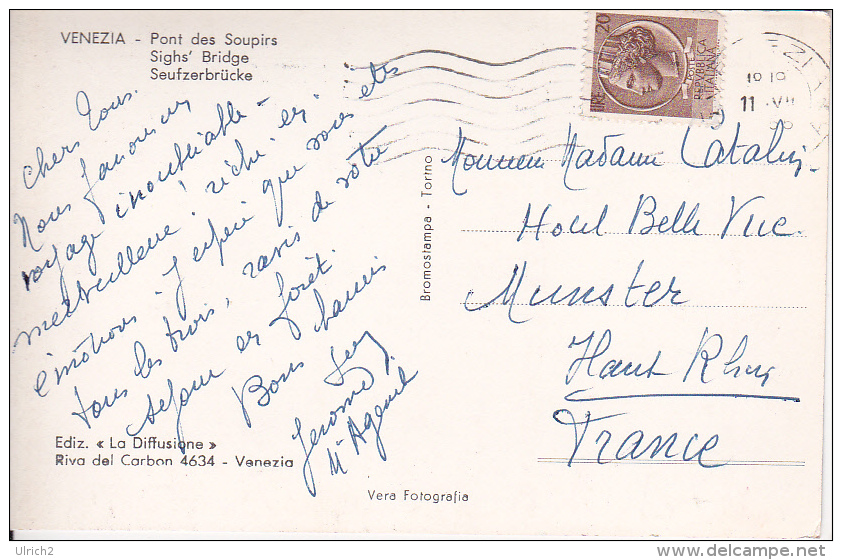 VENEZIA - Pont des Soupirs
Sighs' Bridge
Seufzerbrücke
Chers Tous.
Nous faisons un
voyage inoubliable -
merveilleux, riche en
émotions. J'espère que vous êtes
tous les trois, ravis de votre
séjour en forêt.
Bons
Jerome
Mt Agenil
Ediz. « La Diffusione »
Riva del Carbon 4634 - Venezia
Bromostampa - Torino
Vera Fotografia
LIRE 20
POSTE
REPVBBLICA
ITALIANA
11 · VII
Monsieur Madame
Hotel Belle Vue.
Munster
Haut Rhin
France
Ulrich2
delcampe.net